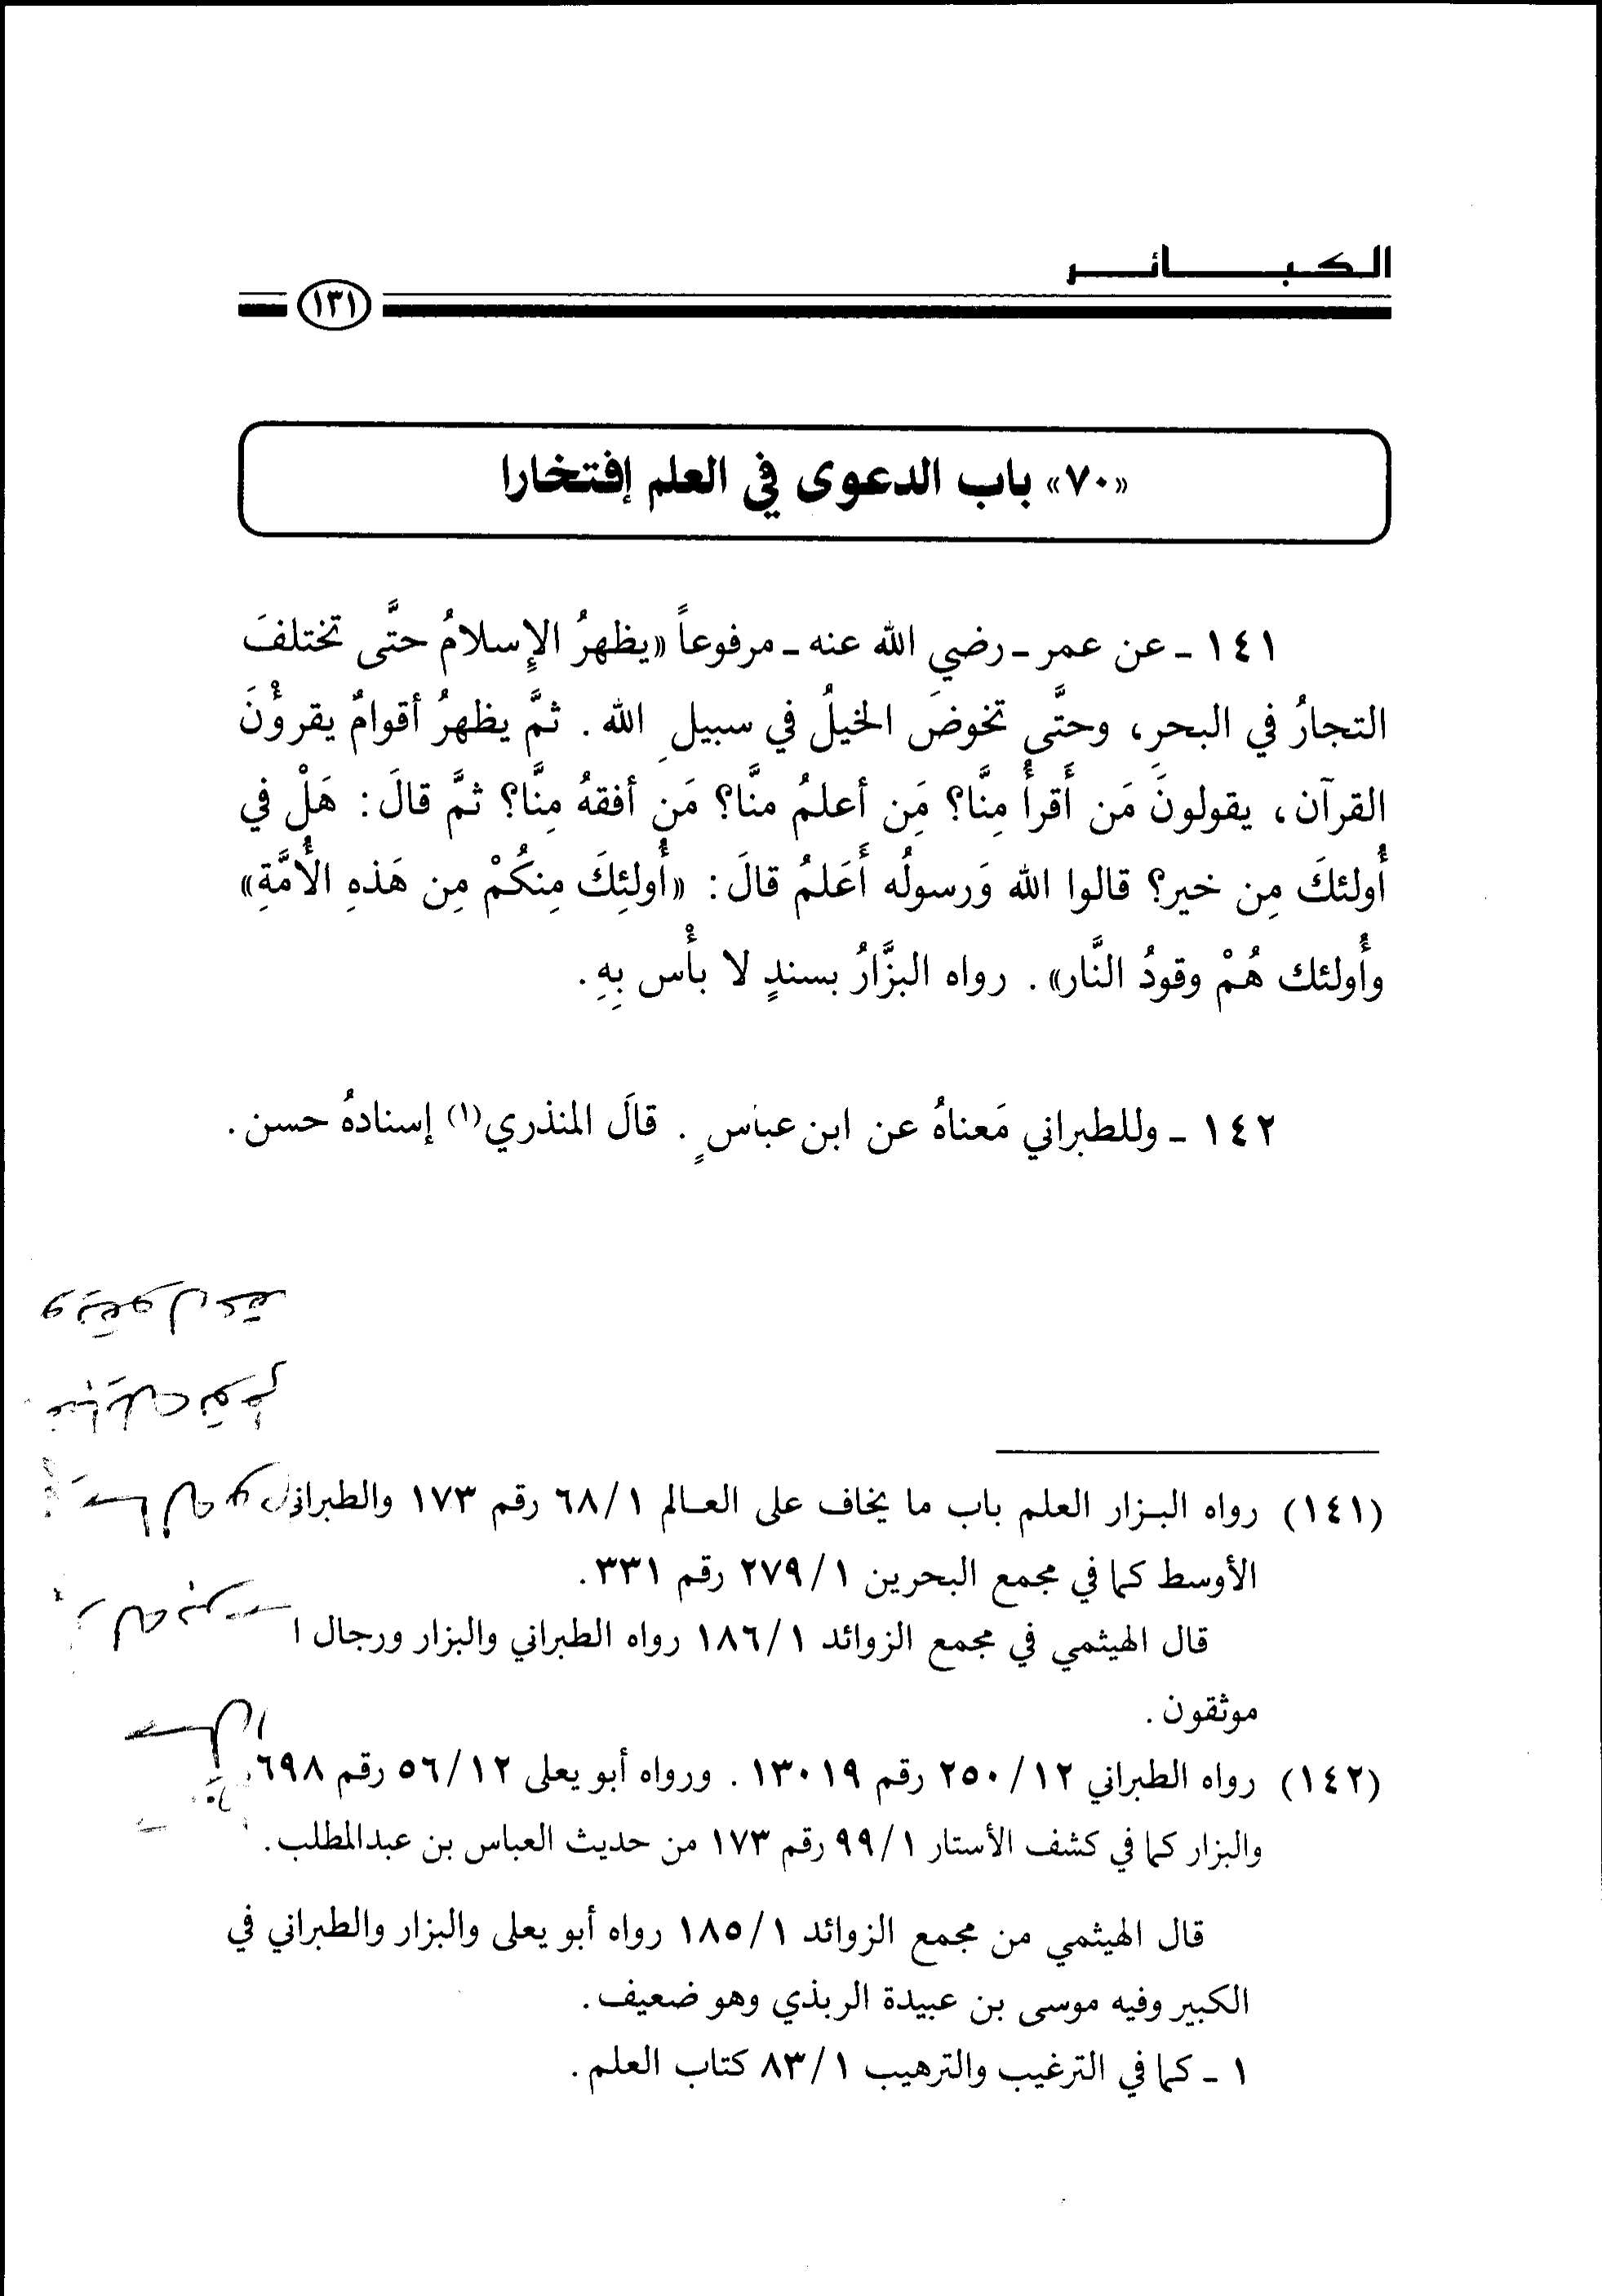 الكبائر
١٣١
«٧٠» باب الدعوى في العلم إفتخارا
١٤١ - عن عمر - رضي الله عنه - مرفوعاً «يظهرُ الإِسلامُ حتَّى تختلفَ
التجارُ في البحرِ، وحتَّى تخوضَ الخيلُ في سبيلِ الله. ثمَّ يظهرُ أقوامٌ يقرؤْنَ
القرآن، يقولونَ مَن أَقرأُ مِنَّا؟ مَن أعلمُ منَّا؟ مَن أفقهُ مِنَّا؟ ثمَّ قالَ: هَلْ في
أُولئكَ مِن خير؟ قالوا الله وَرسولُه أَعَلمُ قالَ: «أُولئِكَ مِنكُمْ مِن هَذهِ الأُمَّةِ»
وأُولئك هُمْ وقودُ النَّار». رواه البزَّارُ بسندٍ لا بأْس بِهِ.
١٤٢ - وللطبراني مَعناهُ عن ابن عباسٍ. قالَ المنذري(١) إسنادهُ حسن.
(١٤١) رواه البزار العلم باب ما يخاف على العالم ٦٨/١ رقم ١٧٣ والطبراني
الأوسط كما في مجمع البحرين ٢٧٩/١ رقم ٣٣١.
قال الهيثمي في مجمع الزوائد ١٨٦/١ رواه الطبراني والبزار ورجال ا
موثقون.
(١٤٢) رواه الطبراني ٢٥٠/١٢ رقم ١٣٠١٩. ورواه أبو يعلى ٥٦/١٢ رقم ٦٩٨
والبزار كما في كشف الأستار ٩٩/١ رقم ١٧٣ من حديث العباس بن عبدالمطلب.
قال الهيثمي من مجمع الزوائد ١٨٥/١ رواه أبو يعلى والبزار والطبراني في
الكبير وفيه موسى بن عبيدة الربذي وهو ضعيف.
١ - كما في الترغيب والترهيب ٨٣/١ كتاب العلم.